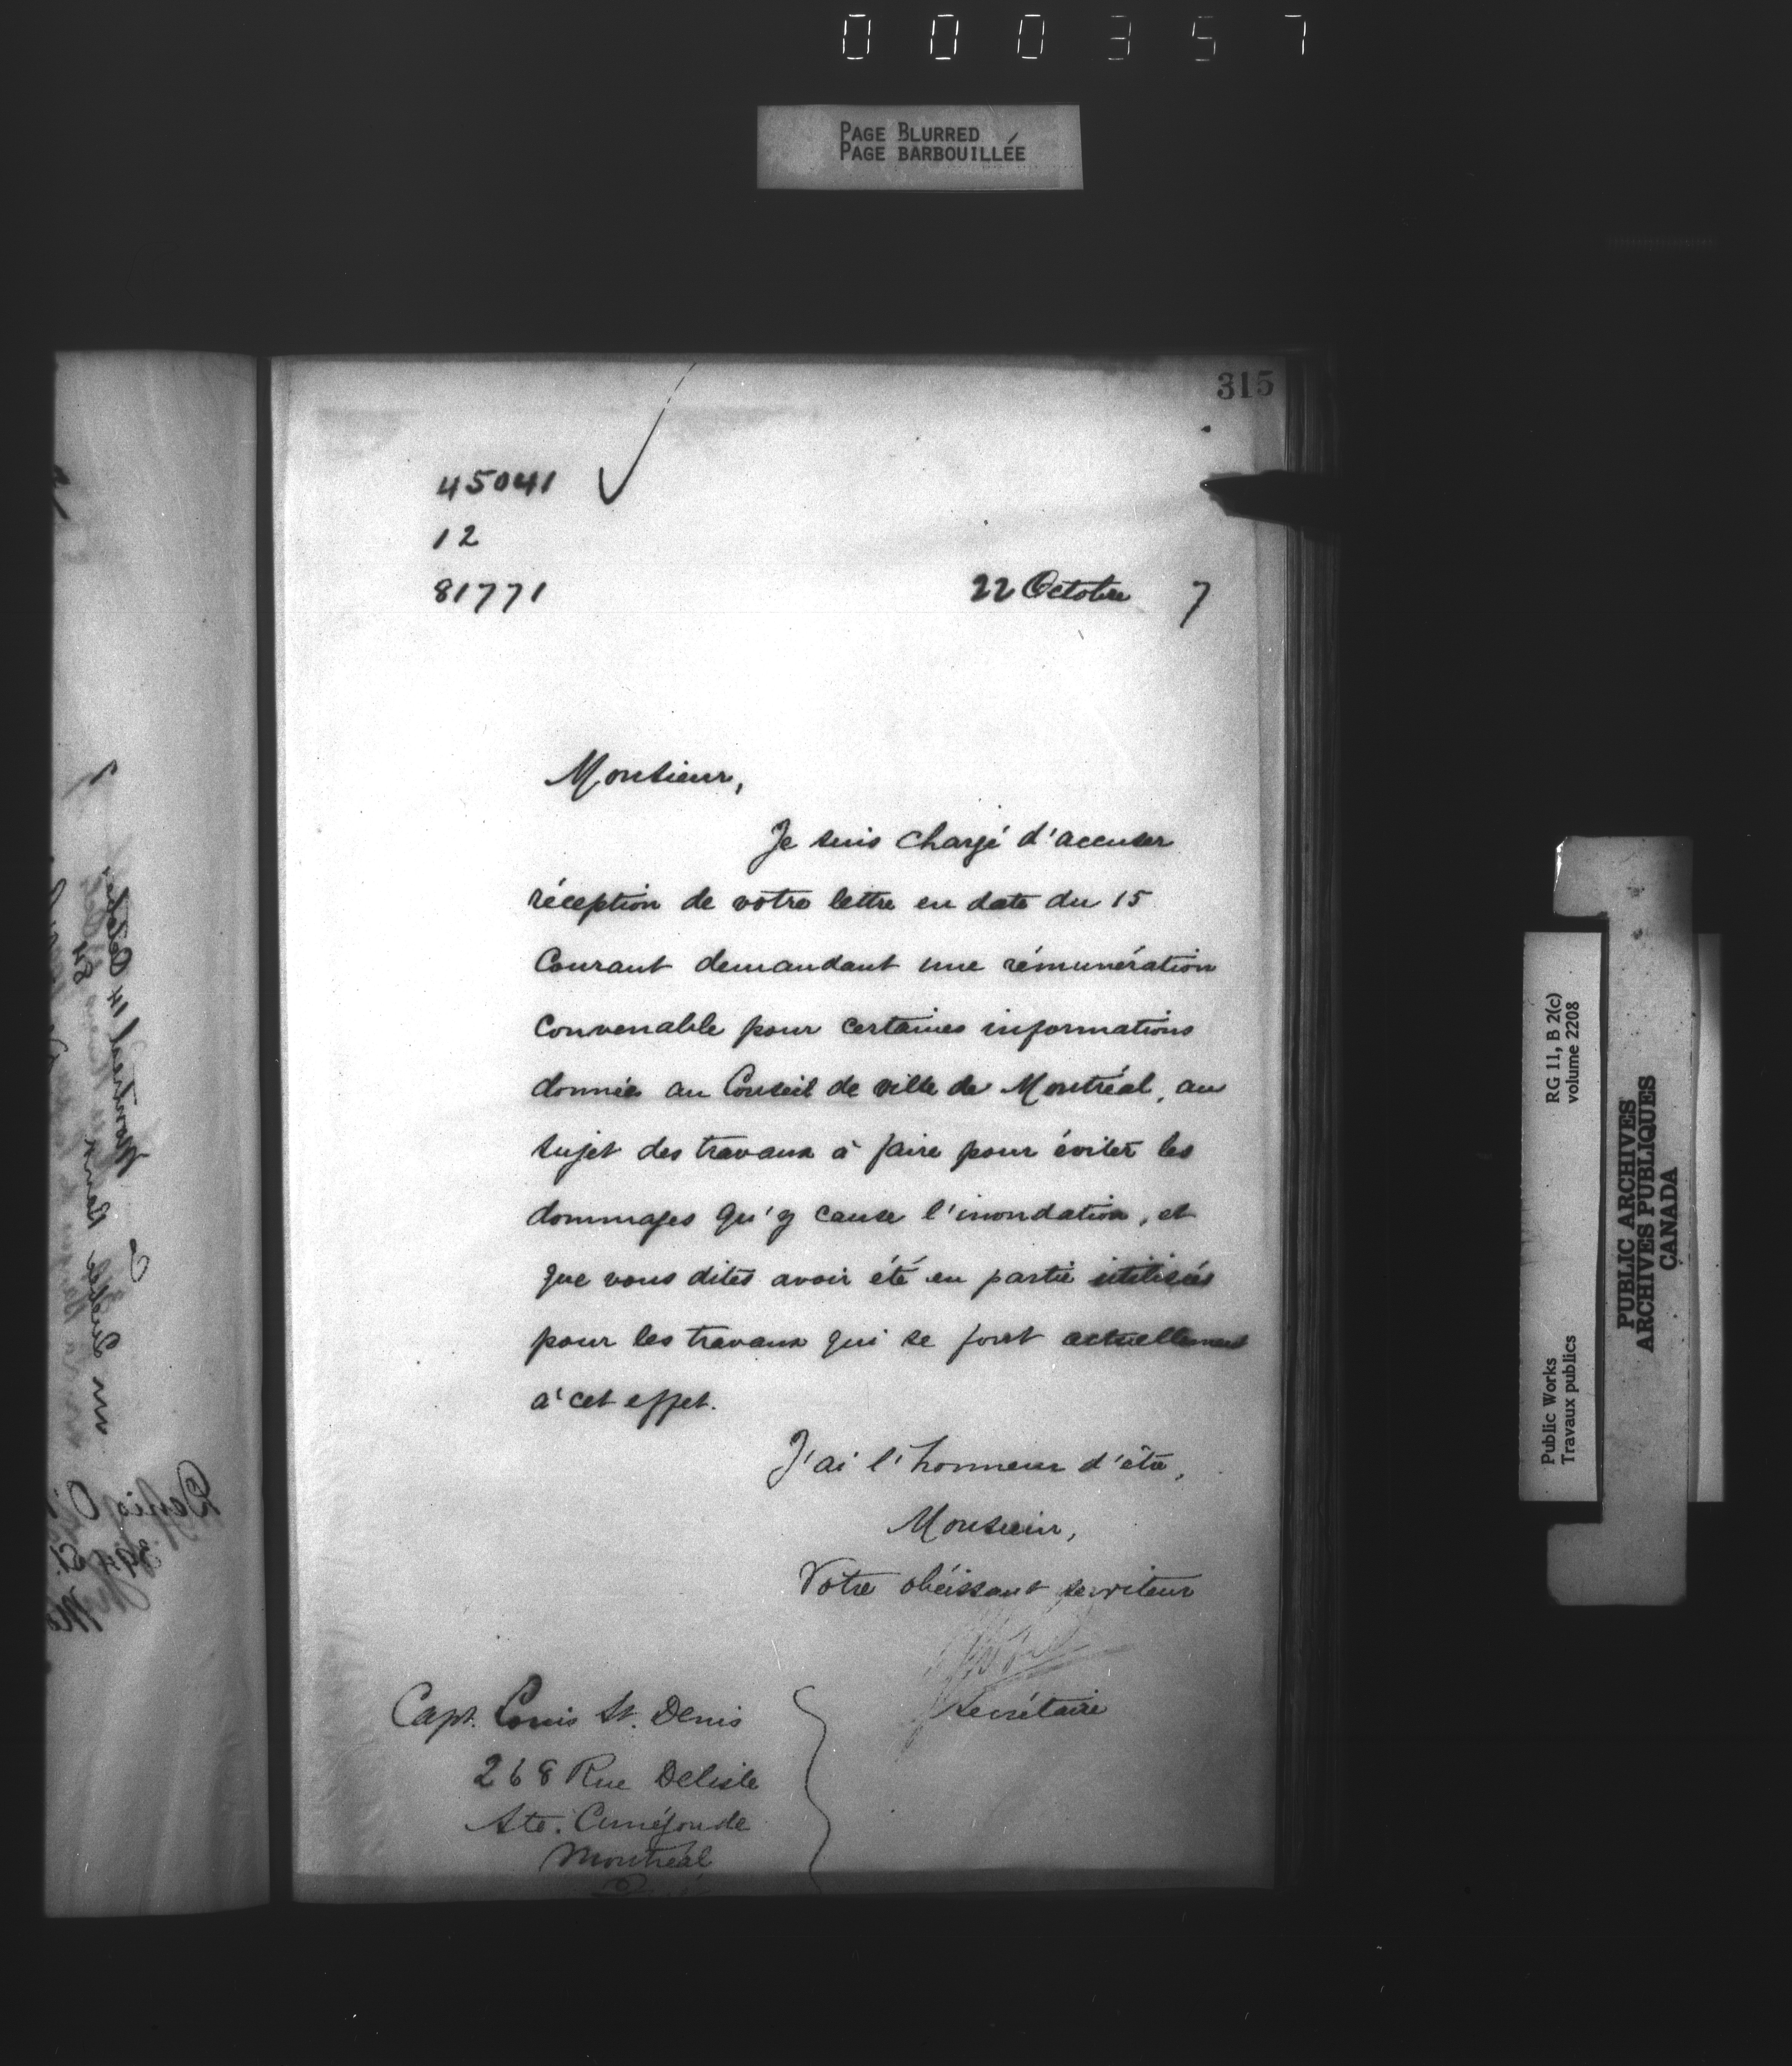 000357
PAGE BLURRED
PAGE BARBOUILLÉE
315
45041
12
81771
22 Octobre 7
Monsieur,
Je suis chargé d'accuser
réception de votre lettre en date du 15
Courant demandant une rémunération
convenable pour certaines informations
données au Conseil de ville de Montréal, au
sujet des travaux à faire pour éviter les
dommages qu'y cause l'inondation, et
que vous dites avoir été en partie utilisées
pour les travaux qui se font actuellement
à cet effet.
J'ai l'honneur d'être,
Monsieur,
Votre obéissant serviteur
Secrétaire
Capt. Louis St. Denis
268 Rue Delisle
Ste. Cunégonde
Montréal
RG 11, B 2(c)
volume 2208
Public Works
Travaux publics
PUBLIC ARCHIVES
ARCHIVES PUBLIQUES
CANADA